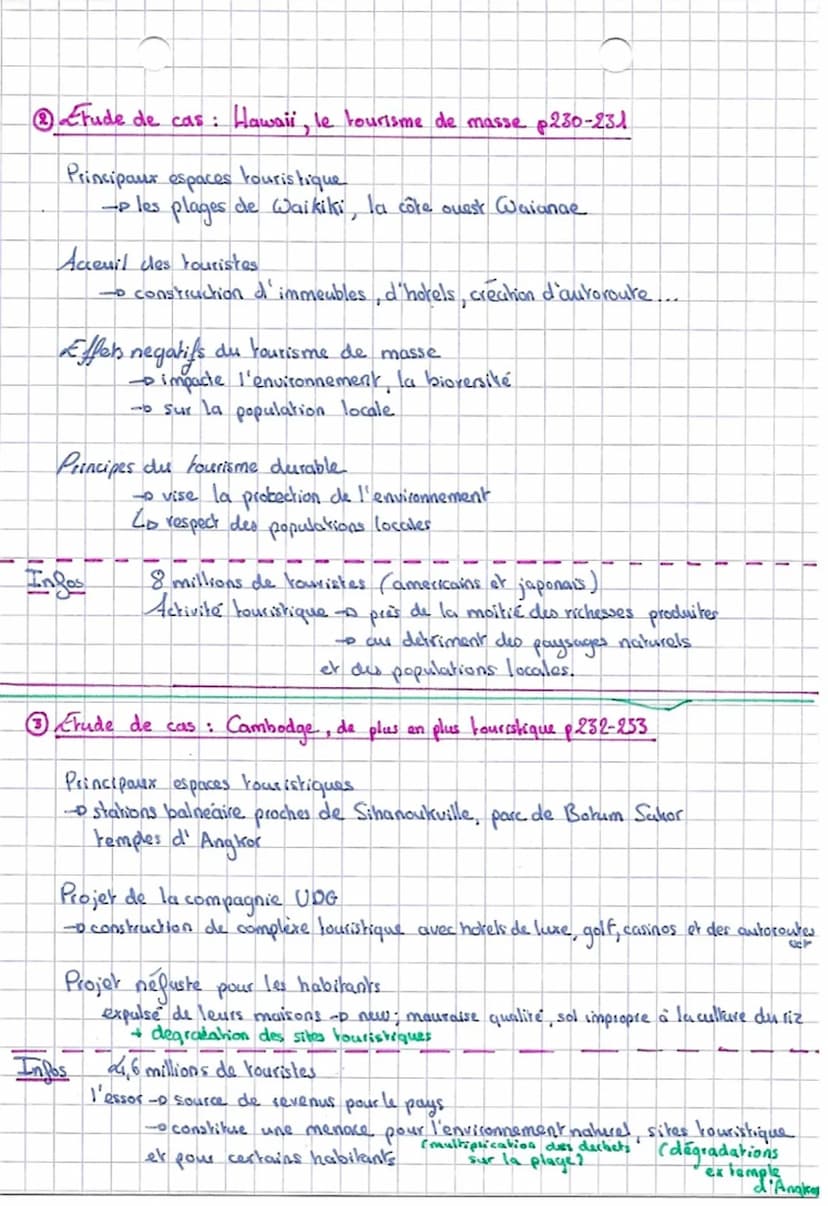 ② Etude de cas : Hawaii, le tourisme de masse p230-231
Principaux espaces touristique
→ les plages de Waikiki, la côte ouest Waianae
Acceuil des touristes
→ construction d'immeubles, d'hotels, création d'autoroute...
Effets negatifs du tourisme de masse
→ impacte l'environnement, la bioversité
→ sur la population locale
Principes du tourisme durable
→ vise la protection de l'environnement
↳ respect des populations locales
Infos 8 millions de touristes (americains et japonais)
Activité touristique → près de la moitié des richesses produites
→ au detriment des paysages naturels
et des populations locales.
③ Etude de cas : Cambodge, de plus en plus touristique p232-233
Principaux espaces touristiques
→ stations balnéaire proches de Sihanoukville, parc de Botum Sakor
temples d'Angkor
Projet de la compagnie UDG
→ construction de complexe touristique avec hotels de luxe, golf, casinos et des autoroutes
Projet néfaste pour les habitants
expulsé de leurs maisons → new ; mauvaise qualité, sol impropre à la culture du riz
+ degradation des sites touristiques
Infos 4,6 millions de touristes
l'essor → source de revenus pour le pays
→ constitue une menace pour l'environnement naturel, sites touristique
(multiplication des dechets (dégradations
et pour certains habitants sur la plage) ex temple
d'Angkor